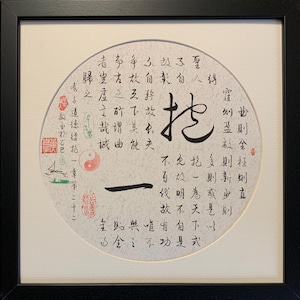 抱一
曲則全枉則直
窪則盈敝則新少則
得多則惑是以
聖人抱一為天下式
不自見故明不自是
故彰不自伐故有功
不自矜故長夫唯不
爭故天下莫能與之
爭古之所謂曲則全
者豈虛言哉誠全而
歸之
老子道德經抱一章第二十二